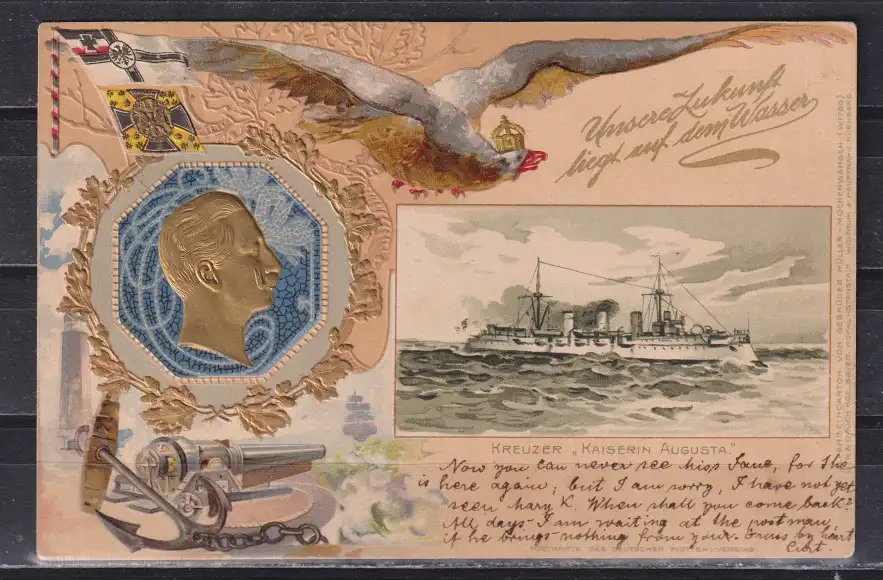 Unsere Zukunft
liegt auf dem Wasser
KREUZER „KAISERIN AUGUSTA."
Now you can never see miss Jane, for she
is here again; but I am sorry, I have not yet
seen Mary K. When shall you come back?
All days I am waiting at the postman,
if he brings nothing from you by heart
Curt.
POSTKARTE DES DEUTSCHEN FLOTTEN-VEREINS.
GEBRÜDER MÜLLER, MOCHENWANGEN (WTTBG.)